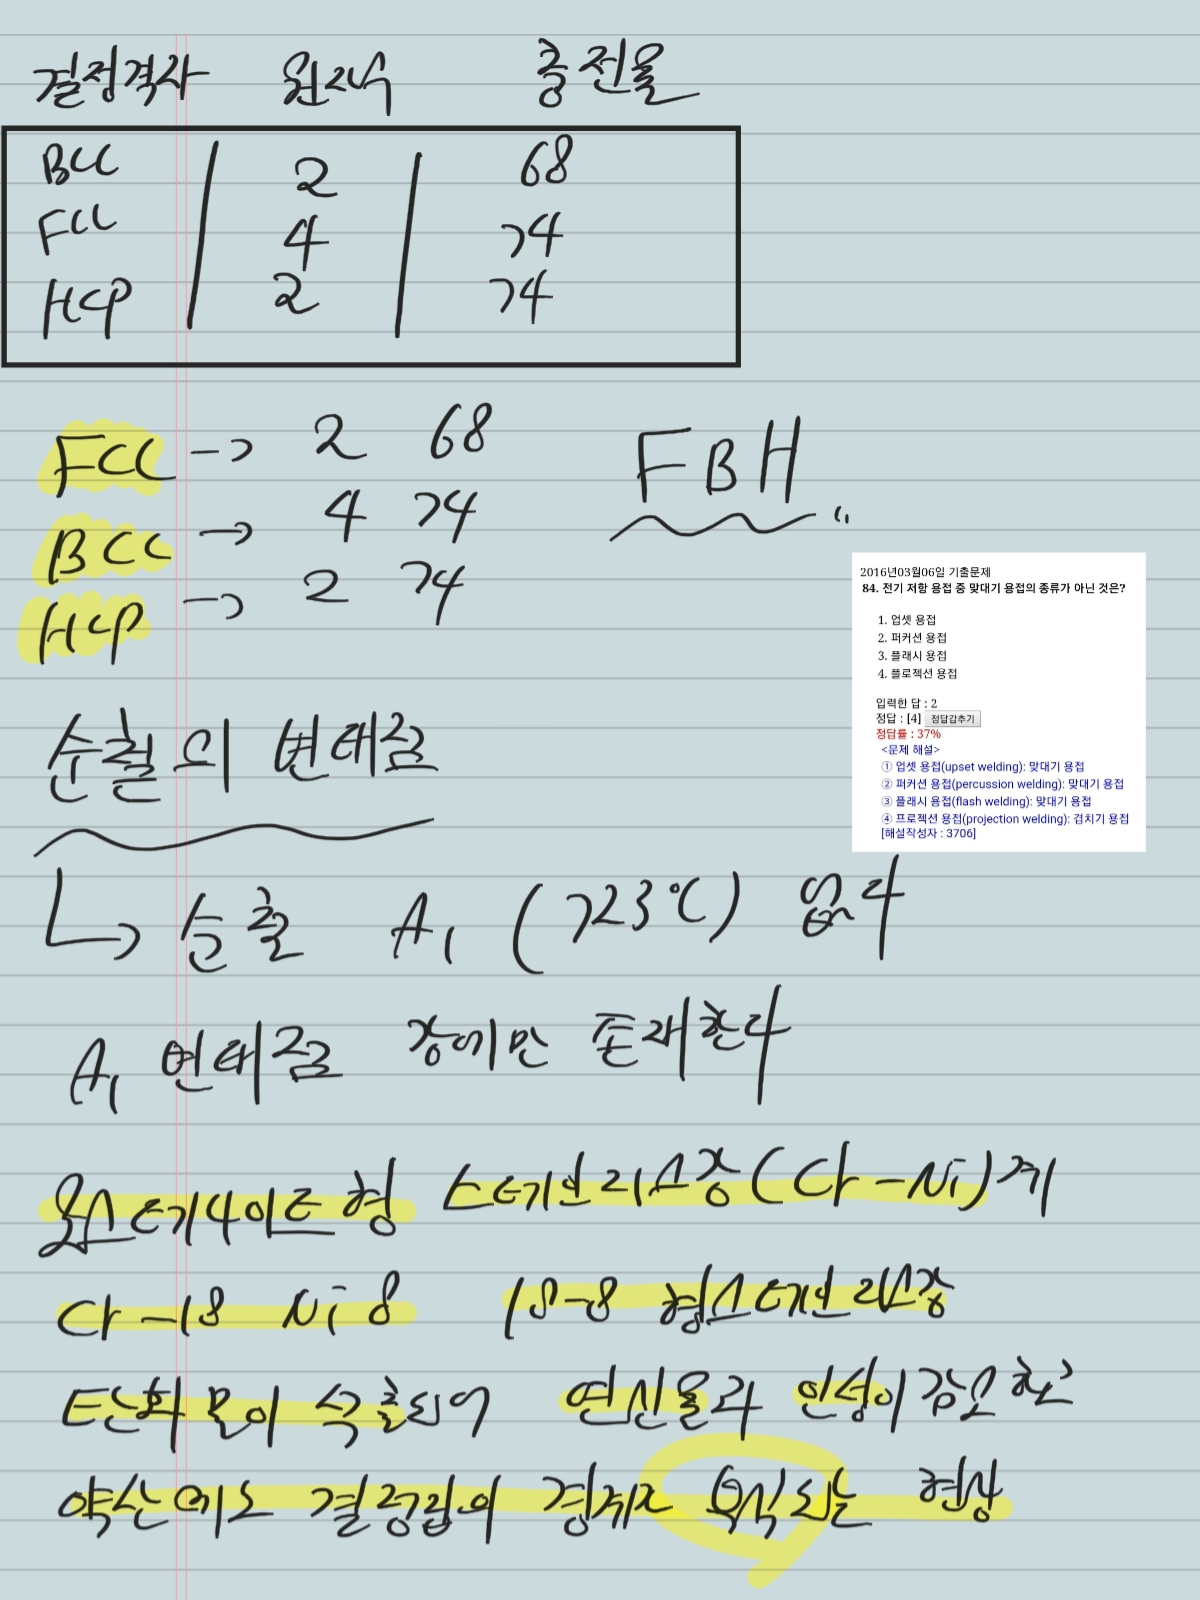 결정격자 원자수 충전율
BCC 2 68
FCC 4 74
HCP 2 74
FCC → 2 68
BCC → 4 74
HCP → 2 74
FBH
2016년03월06일 기출문제
84. 전기 저항 용접 중 맞대기 용접의 종류가 아닌 것은?
1. 업셋 용접
2. 퍼커션 용접
3. 플래시 용접
4. 플로젝션 용접
입력한 답 : 2
정답 : [4] 정답감추기
정답률 : 37%
<문제 해설>
① 업셋 용접(upset welding): 맞대기 용접
② 퍼커션 용접(percussion welding): 맞대기 용접
③ 플래시 용접(flash welding): 맞대기 용접
④ 프로젝션 용접(projection welding): 겹치기 용접
[해설작성자 : 3706]
순철의 변태점
↳ 순철 A₁ (723℃) 없다
A₁ 변태점 강에만 존재한다
오스테나이트형 스테인리스강(Cr-Ni)계
Cr-18 Ni 8 18-8 형스테인리스강
탄화물이 석출되어 연신율과 인성이 감소하고
약산에도 결정립의 경계가 부식되는 현상